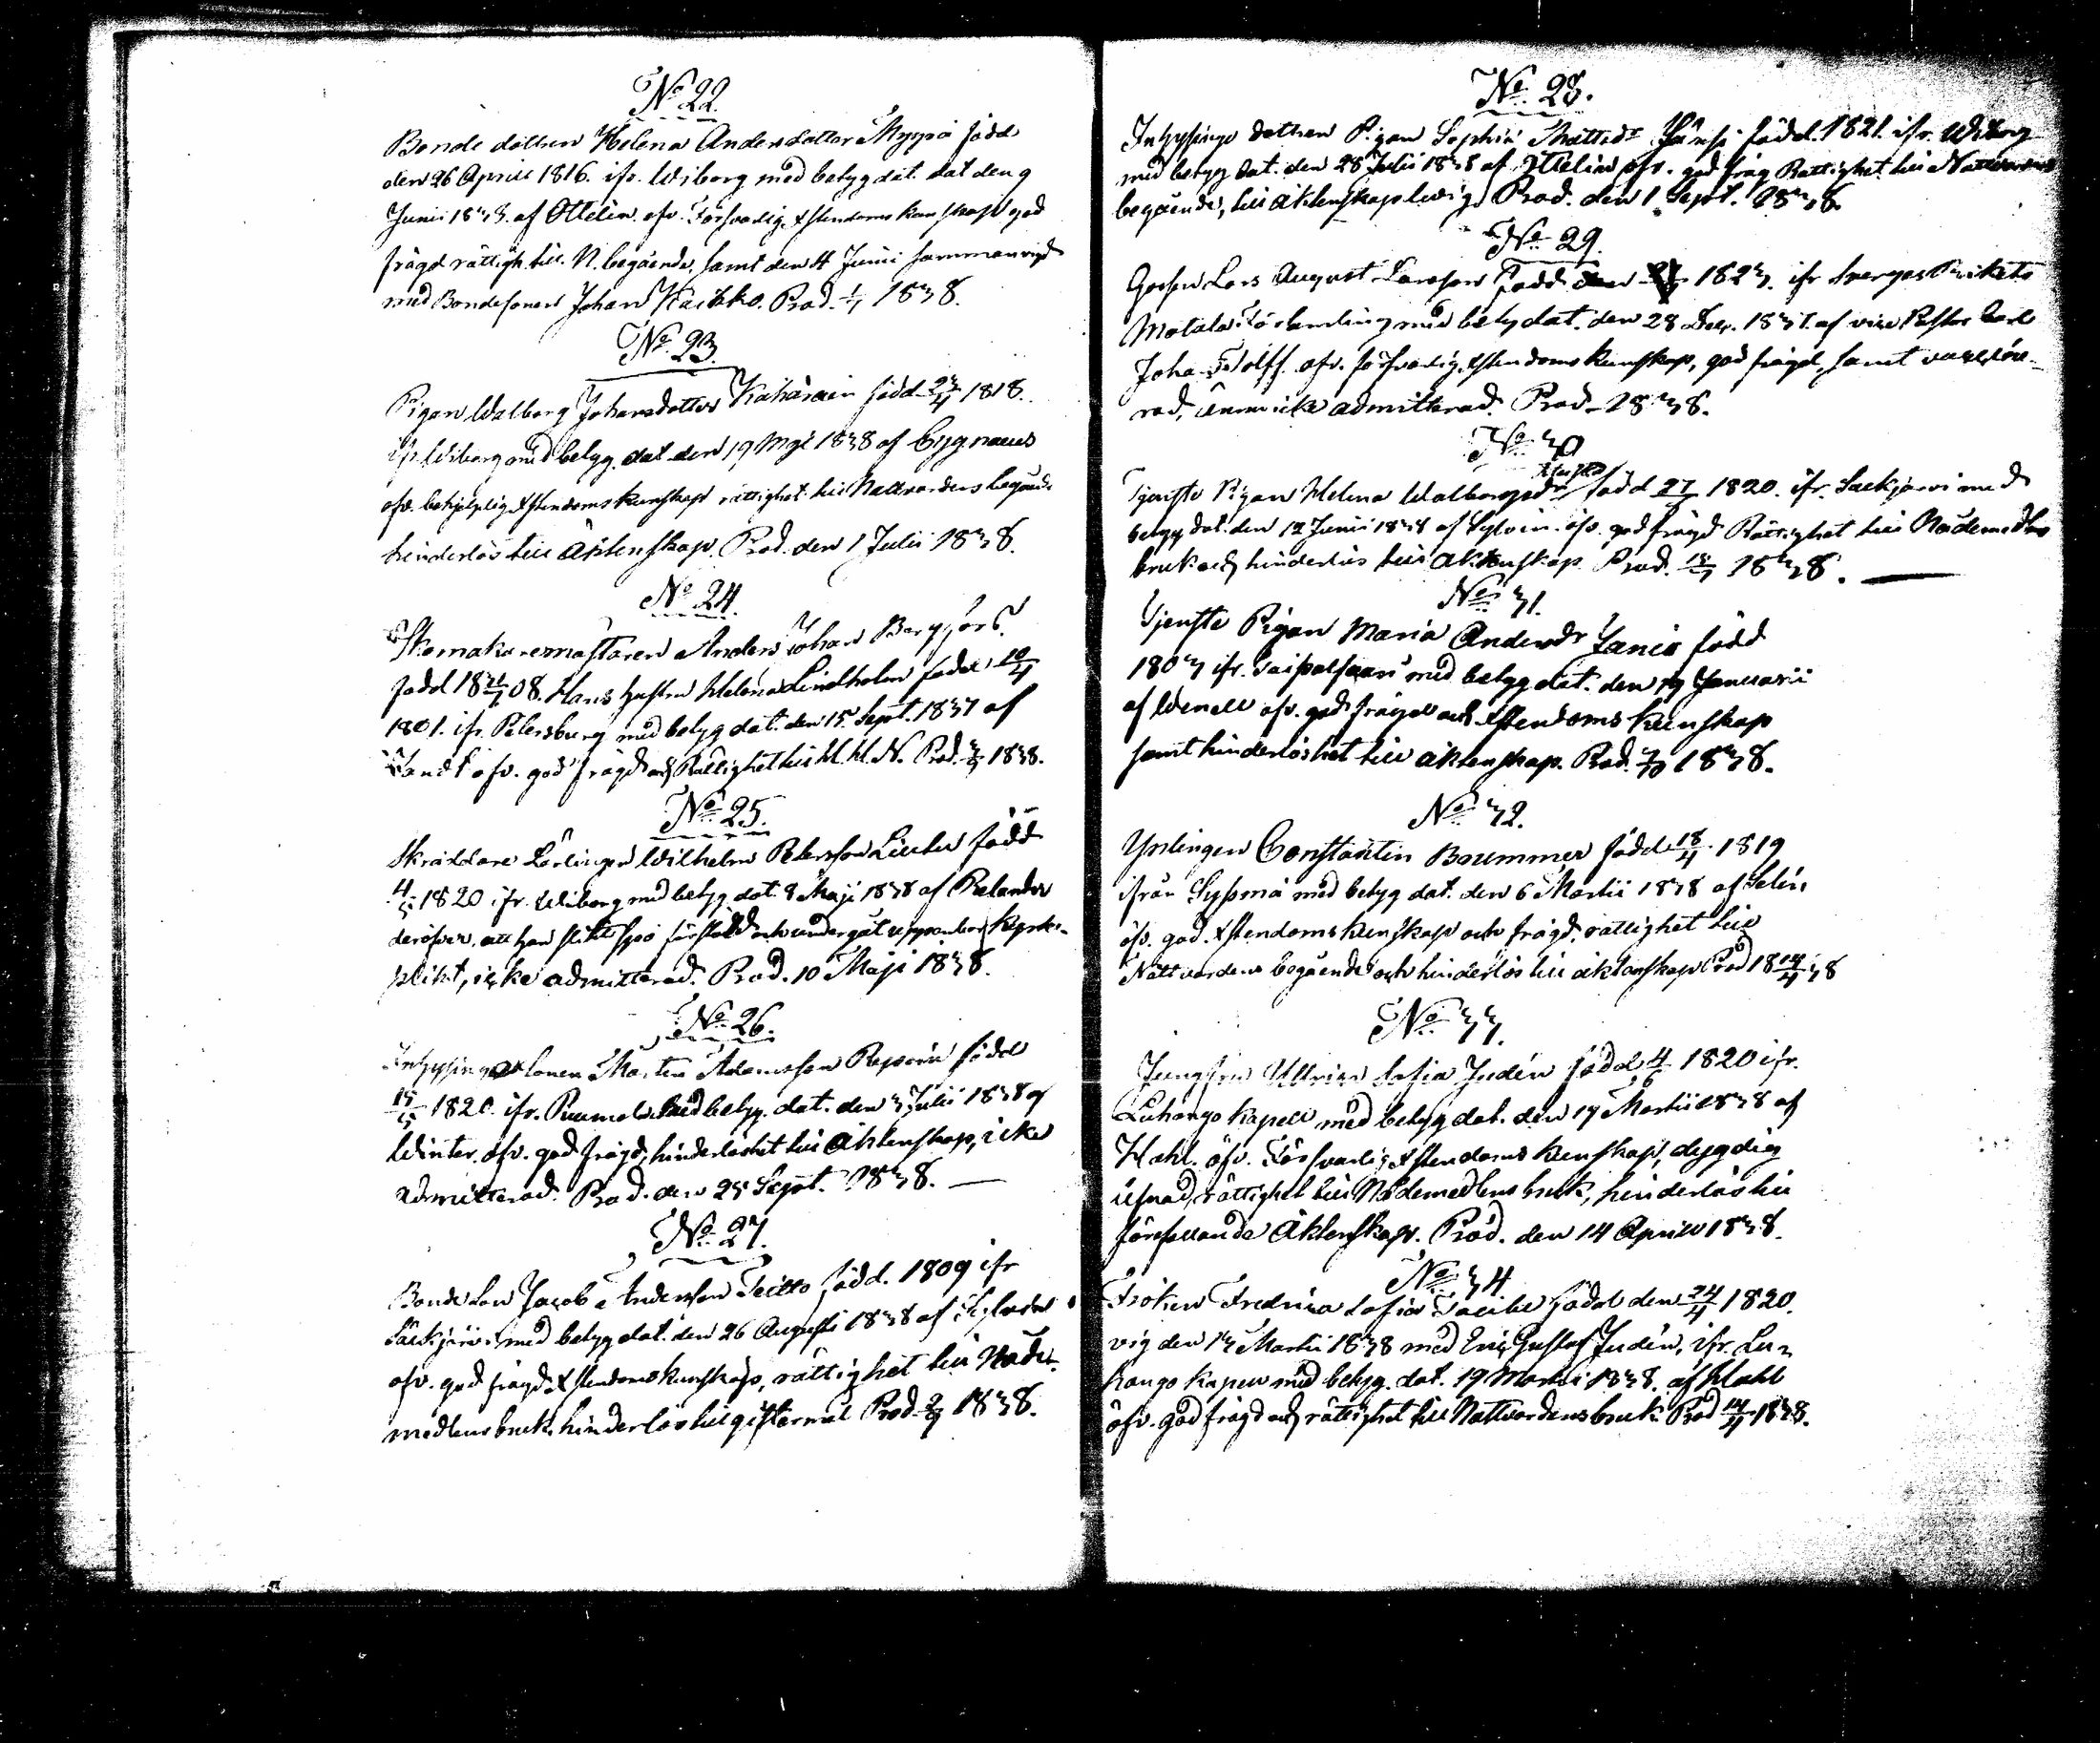 No 22.
Bonde dottren Helena Andersdotter Myyrä född
den 26 Aprill 1816. ifr. Wiborg med betyg dat. dat den 9
Junii 1838. af Ottelin. öfv. Försvarlig Xstendoms kunskap god
frägd rättigh. till. N. begående, samt den 4 Junii sammanvigd
med Bondesonen Johan Prod. 1/7 1838.
No 23.
Pigan Walborg Johansdotter född 23/4 1818.
ifr. Wiborg med betyg dat den 19 Maji 1838 af Cygnaeus
öfv. behjelplig Xstendomskunskap rättighet till Nattvardens begående
hinderlös till Äktenskap. Prod. den 1 Julii 1838.
No 24.
Skomakaremästaren Anders Johan
född 18 08. Hans hustru Helena Lindholm född 10/4
1801. ifr. Petersburg med betyg dat. den 15 Sept. 1837 af
öfv. god frägd och Rättighet till H. H. N. Prod. 1838.
No 25.
Skräddare Lärlingen Wilhelm Petersson född
4/5 1820 ifr. Wiborg med betyg dat. 8 Maji 1838 af
deröfver, att han och undergått uppenbar Kyrko-
plikt, icke admitterad. Prod. 10 Maji 1838.
No 26.
Inhysinge Sonen Martin Adamsson född
15/5 1820. ifr. Puumala med betyg. dat. den 3 Julii 1838 af
Winter. öfv. god frägd, hinderlöshet till Äktenskap, icke
admitterad. Prod. den 25 Sept. 1838. —
No 27.
Bonde Son Jacob Andersson Teitto född. 1809 ifr
Säckjärvi med betyg dat. den 26 Augusti 1838 af
öfv. god frägd Xstendomskunskap, rättighet till Nåde-
medlens bruk. hinderlös till giftermål Prod. 2/9 1838.
No 28.
Inhysinge dottren Pigan Sophia Mattsdr född. 1821. ifr. Wiborg
med betyg dat. den 28 Julii 1838 af Ottelin öfv. god fräg Rättighet till Nattvardens
begående, till äktenskap ledig. Prod. den 1 Sept. 1838.
No 29.
Gossen Lars August Larsson född den 1823. ifr Sverges Rikets
Motala Församling med betyg dat. den 28 Dec. 1837. af vice Pastor Carl
Joha öfv. försvarlig Xstendoms kunskap, god frägd, samt
rad, ännu icke admitterad. Prod. 1838.
No 30
Tjenste Pigan Helena Walborgsdr född 27 1820. ifr. Säckjärvi med
betyg dat. den 12 Junii 1838 af Sylvin. öfv. god frägd Rättighet till Nådemedlens
bruk och hinderlös till äktenskap Prod. 15/7 1838. —
No 31.
Tjenste Pigan Maria Andersdr född
1803 ifr. Taipalsaari med betyg dat. den 19 Januarii
af Wenell öfv. god frägd och Xstendoms kunskap
samt hinderlöshet till äktenskap. Prod. 1838.
No 32.
Ynlingen Constantin Brummer född 18/4 1819
ifrån Sysmä med betyg dat. den 6 Martii 1838 af
öfv. god. Xstendoms kunskap och frägd, rättighet till
Nattvardens begående och hinderlös till äktenskap Prod 18 14/4 38
No 33.
Jungfru Ulrica Sofia Judén född 4/6 1820 ifr.
Luhango Kapell med betyg dat. den 19 Martii 1838 af
Hahl. öfv. Försvarlig Xstendoms kunskap, dygdig
lefnad, rättighet till Nådemedlens bruk, hinderlös till
förefallande Äktenskap. Prod. den 14 Aprill 1838.
No 34
Fröken Fredrica Sofia född den 24/4 1820.
vig den 13 Martii 1838 med Eric Gustaf Judén, ifr. Lu-
hango Kapell med betyg. dat. 19 Martii 1838. af Hahl
öfv. god frägd och rättighet till Nattvardens bruk. Prod 14/4 1838.